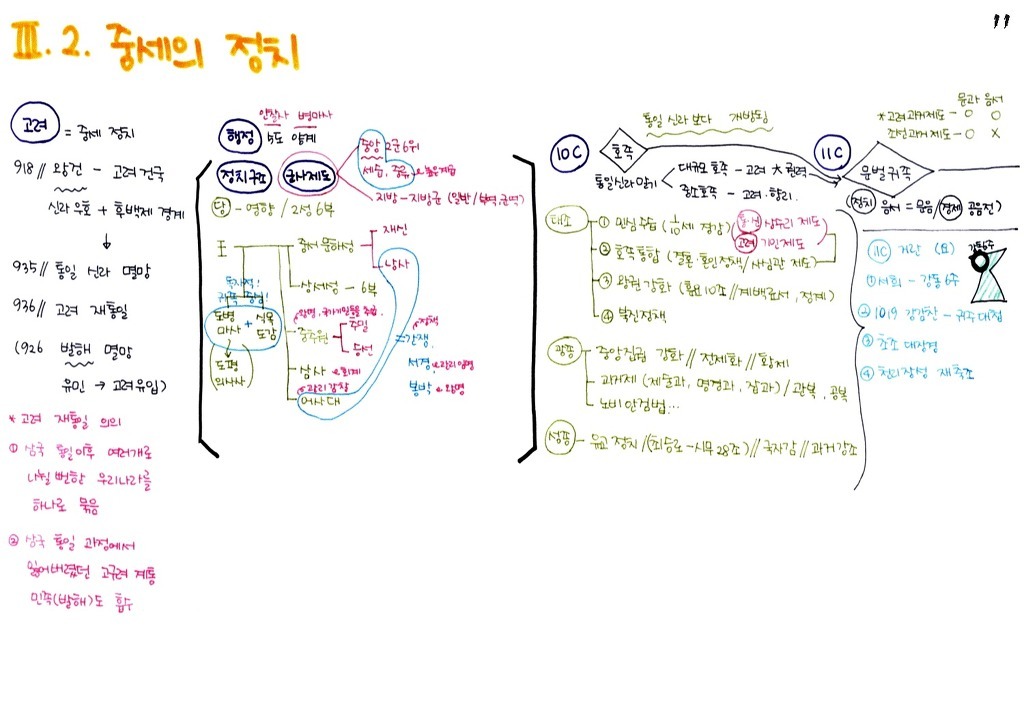 11
III. 2. 중세의 정치
고려 = 중세 정치
918// 왕건 - 고려 건국
신라 우호 + 후백제 경계
↓
935// 통일 신라 멸망
936// 고려 재통일
(926 발해 멸망
유민 → 고려 유입)
* 고려 재통일 의의
① 삼국 통일 이후 여러개로
나뉠 뻔한 우리나라를
하나로 묶음
② 삼국 통일 과정에서
잃어버렸던 고구려 계통
민족(발해)도 흡수
안찰사 병마사
행정 5도 양계
정치구조 군사제도
중앙 2군 6위
세습, 중류
지방 - 지방군
당 - 영향 / 2성 6부
王
중서문하성
재신
낭사
상서성 - 6부
독자적!
귀족
도병마사 + 식목도감
↓
도평의사사
중추원
추밀
승선
삼사 회계
관리감찰
어사대
=간쟁, 정책
서경, 관리임명
봉박 왕명
통일 신라보다 개방됨
10C 호족
통일신라 말기
대규모 호족 - 고려 ★ 권력
중소호족 - 고려. 향리.
11C 문벌귀족
문과 음서
*고려 과거제도 - O O
조선 과거 제도 - O X
정치 음서 = 문음/ 경제 공음전)
태조
① 민심수습 (1/10세 경감)
통·신 상수리 제도
고려 기인제도
② 호족통합 (결혼·혼인정책/사심관 제도)
③ 왕권 강화 (훈요10조 // 계백료서, 정계)
④ 북진정책
광종
중앙집권 강화 // 전제화 // 황제
과거제 (제술과, 명경과, 잡과) / 관복, 공복
노비안검법...
성종 - 유교 정치 / (최승로 - 시무 28조) // 국자감 // 과거 강조
11C 거란 (요)
강동6주
①서희 - 강동 6주
② 1019 강감찬 - 귀주대첩
③ 초조 대장경
④ 천리장성 재축조